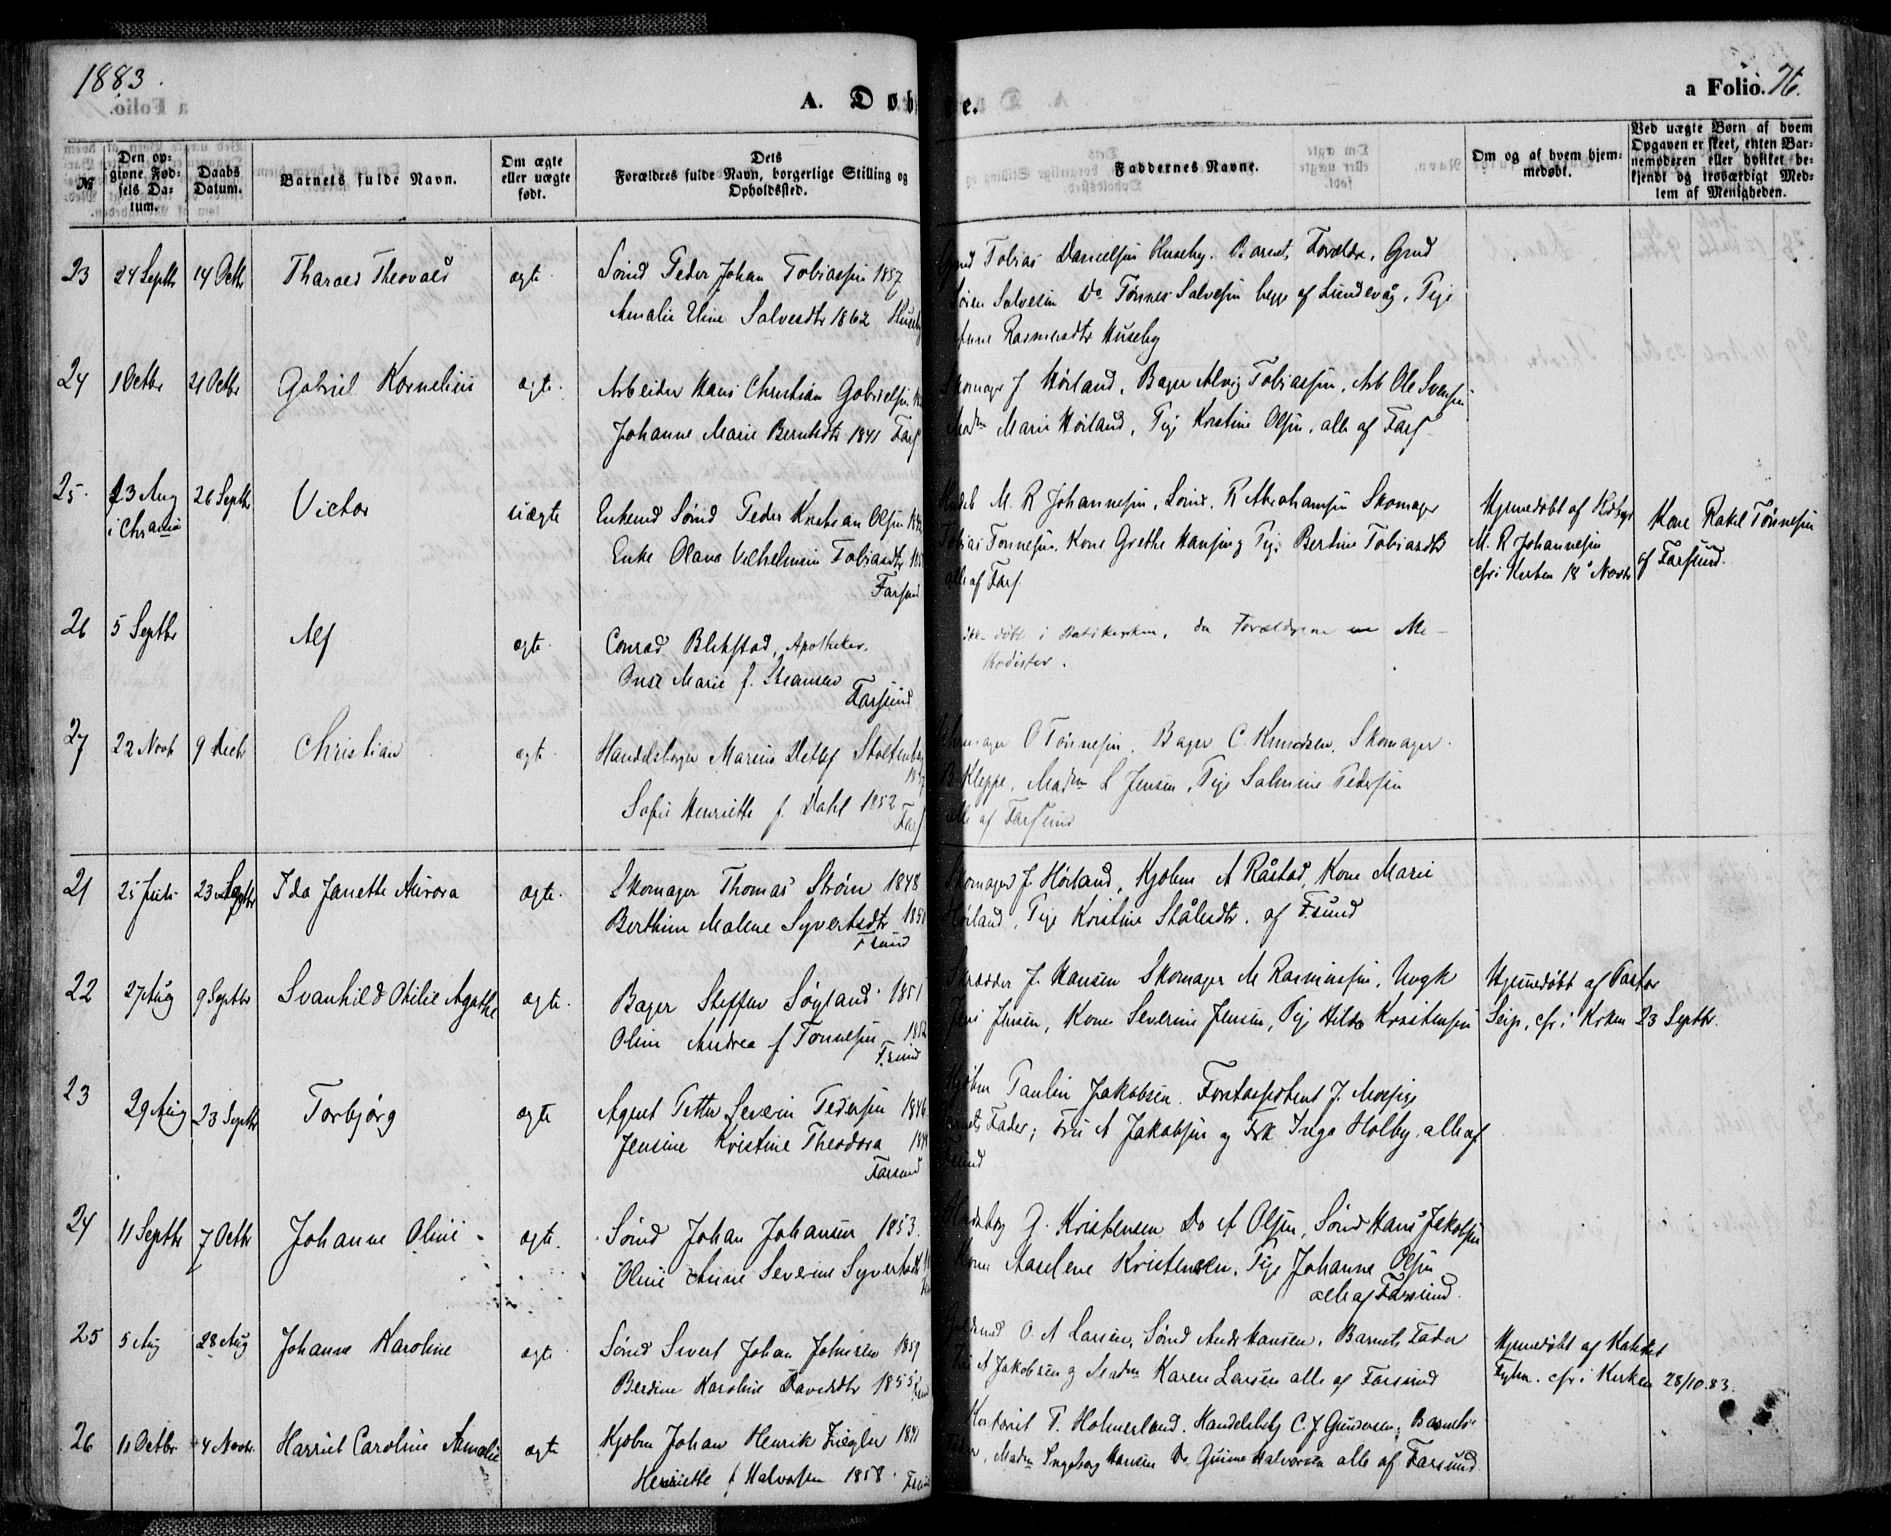 1883.
a Folio. 76.
A. Døbte.
№
Den opgivne Fødsels Datum.
Daabs Datum.
Barnets fulde Navn.
Om ægte eller uægte født.
Forældres fulde Navn, borgerlige Stilling og Opholdssted.
Faddernes Navne.
Om og af hvem hjemmedøbt.
Ved uægte Børn af hvem Opgaven er skeet, enten Barnemoderen eller hvilket bekjendt og troværdigt Medlem af Menigheden.
23 24 Septbr 14 Octbr Tharald Theovald ægte Sømd Peder Johan Tobiassen 1857
Amalie Eline Salvesdtr 1862 Huseby
Tobias Danielsen Huseby. Barnets Forældre. Gmd
Søren Salvesen Do Tønnes Salvesen begge af Lundevåg, Pige
Anne Rasmusdtr Huseby
24 1 Octbr 21 Octbr Gabriel Kornelius ægte. Arbeider Hans Christian Gabrielsen
Johanne Marie Berntsdtr 1841 Fars
Skomager J Hørland, Bager Alvig Tobiassen, Arb Ole Svensen
Madm Marie Hørland, Pige Kristine Olsen, alle af Fars
25. 23 Aug 26 Septbr Victor uægte Enkemd Sømd Peder Kristian Olsen
i Chrania
Enke Olava Vilhelmine Tobiasdtr
Farsund
M. R Johannesen, Sømd. R Abrahamsen Skomager
Tobias Tønnesen, Kone Grethe Hansen og Pige Bertine Tobiasdtr
alle af Fars.
Hjemmedøbt af
M. R Johannesen
cfr i Kirken 18 Novbr
Kone Rakel Tønnesen
af Farsund.
26 5 Septbr Alf ægte. Conrad Blikstad, Apotheker.
Marie f.
Farsund
Ikke døbt i Statskirken, da Forældrene ere Me-
thodister.
27 22 Novbr 9 Decbr Christian ægte. Handelsborger Marius Detlef Stoltenberg
Sofie Henriette f. Dahl 1852
Fars
Skomager O Tønnesen, Bager C. Knudsen, Skomager
B. Kleppe, Madm S Jensen, Pige Salmine Pedersen
alle af Farsund
21 25 Juli 23 Septbr Ida Janette Aurora ægte. Skomager Thomas Strøm 1848
Berthine Malene Syvertsdtr
Fsund
Skomager J. Hørland, Kjøbm A Råstad, Kone Marie
Hørland, Pige Kristine Ståhlsdtr. af Fsund
22 27 Aug 9 Septbr Svanhild Otilie Agathe ægte. Bager Steffen Søyland 1851
Oline Andrea f Tønnesen 1852
Fsund
Skrædder J. Hansen Skomager M Rasmussen, Ungk
Jensen, Kone Severine Jensen, Pige Hilda Kristensen
Hjemmedøbt af Pastor
Seip, cfr i Kirken 23 Septbr.
23 29 Aug 23 Septbr Torbjørg ægte Agent Petter Severin Pedersen 1846
Jensine Kristine Theodora
Farsund
Kjøbm Paulin Jakobsen. Forstassistent J. Mossige
Barnets Fader; Fru A Jakobsen og Frk Inga Holby, alle af
Fsund
24 11 Septbr 7 Octbr Johanne Oline ægte. Sømd Johan Johansen 1853
Oline Anne Severine Syvertsdtr
G. Kristensen Do A Olsen, Sømd Hans Jakobsen
Kone Aaselene Kristensen, Pige Johanne Olsen
alle af Farsund.
25 5 Aug 28 Aug Johanne Karoline ægte Sømd Sivert Johan Johnsen 1859
Berdine Karoline Davidsdtr 1855
O. A Larsen, Sømd Ands Hansen, Barnets Fader
Fru A Jakobsen og Madm Karen Larsen alle af Farsund
Hjemmedøbt af
cfr i Kirken 28/10.83.
26 11 Octbr. 4 Novbr. Harriet Caroline Amalie ægte Kjøbm Johan Henrik Ziegler 1841
Henriette f Halvorsen 1858
T. Holmerland. Handelsbg C. J Gundersen, Barnets
Fader, Madm Ingeborg Hansen Do Gunine Halvorsen alle af Farsund